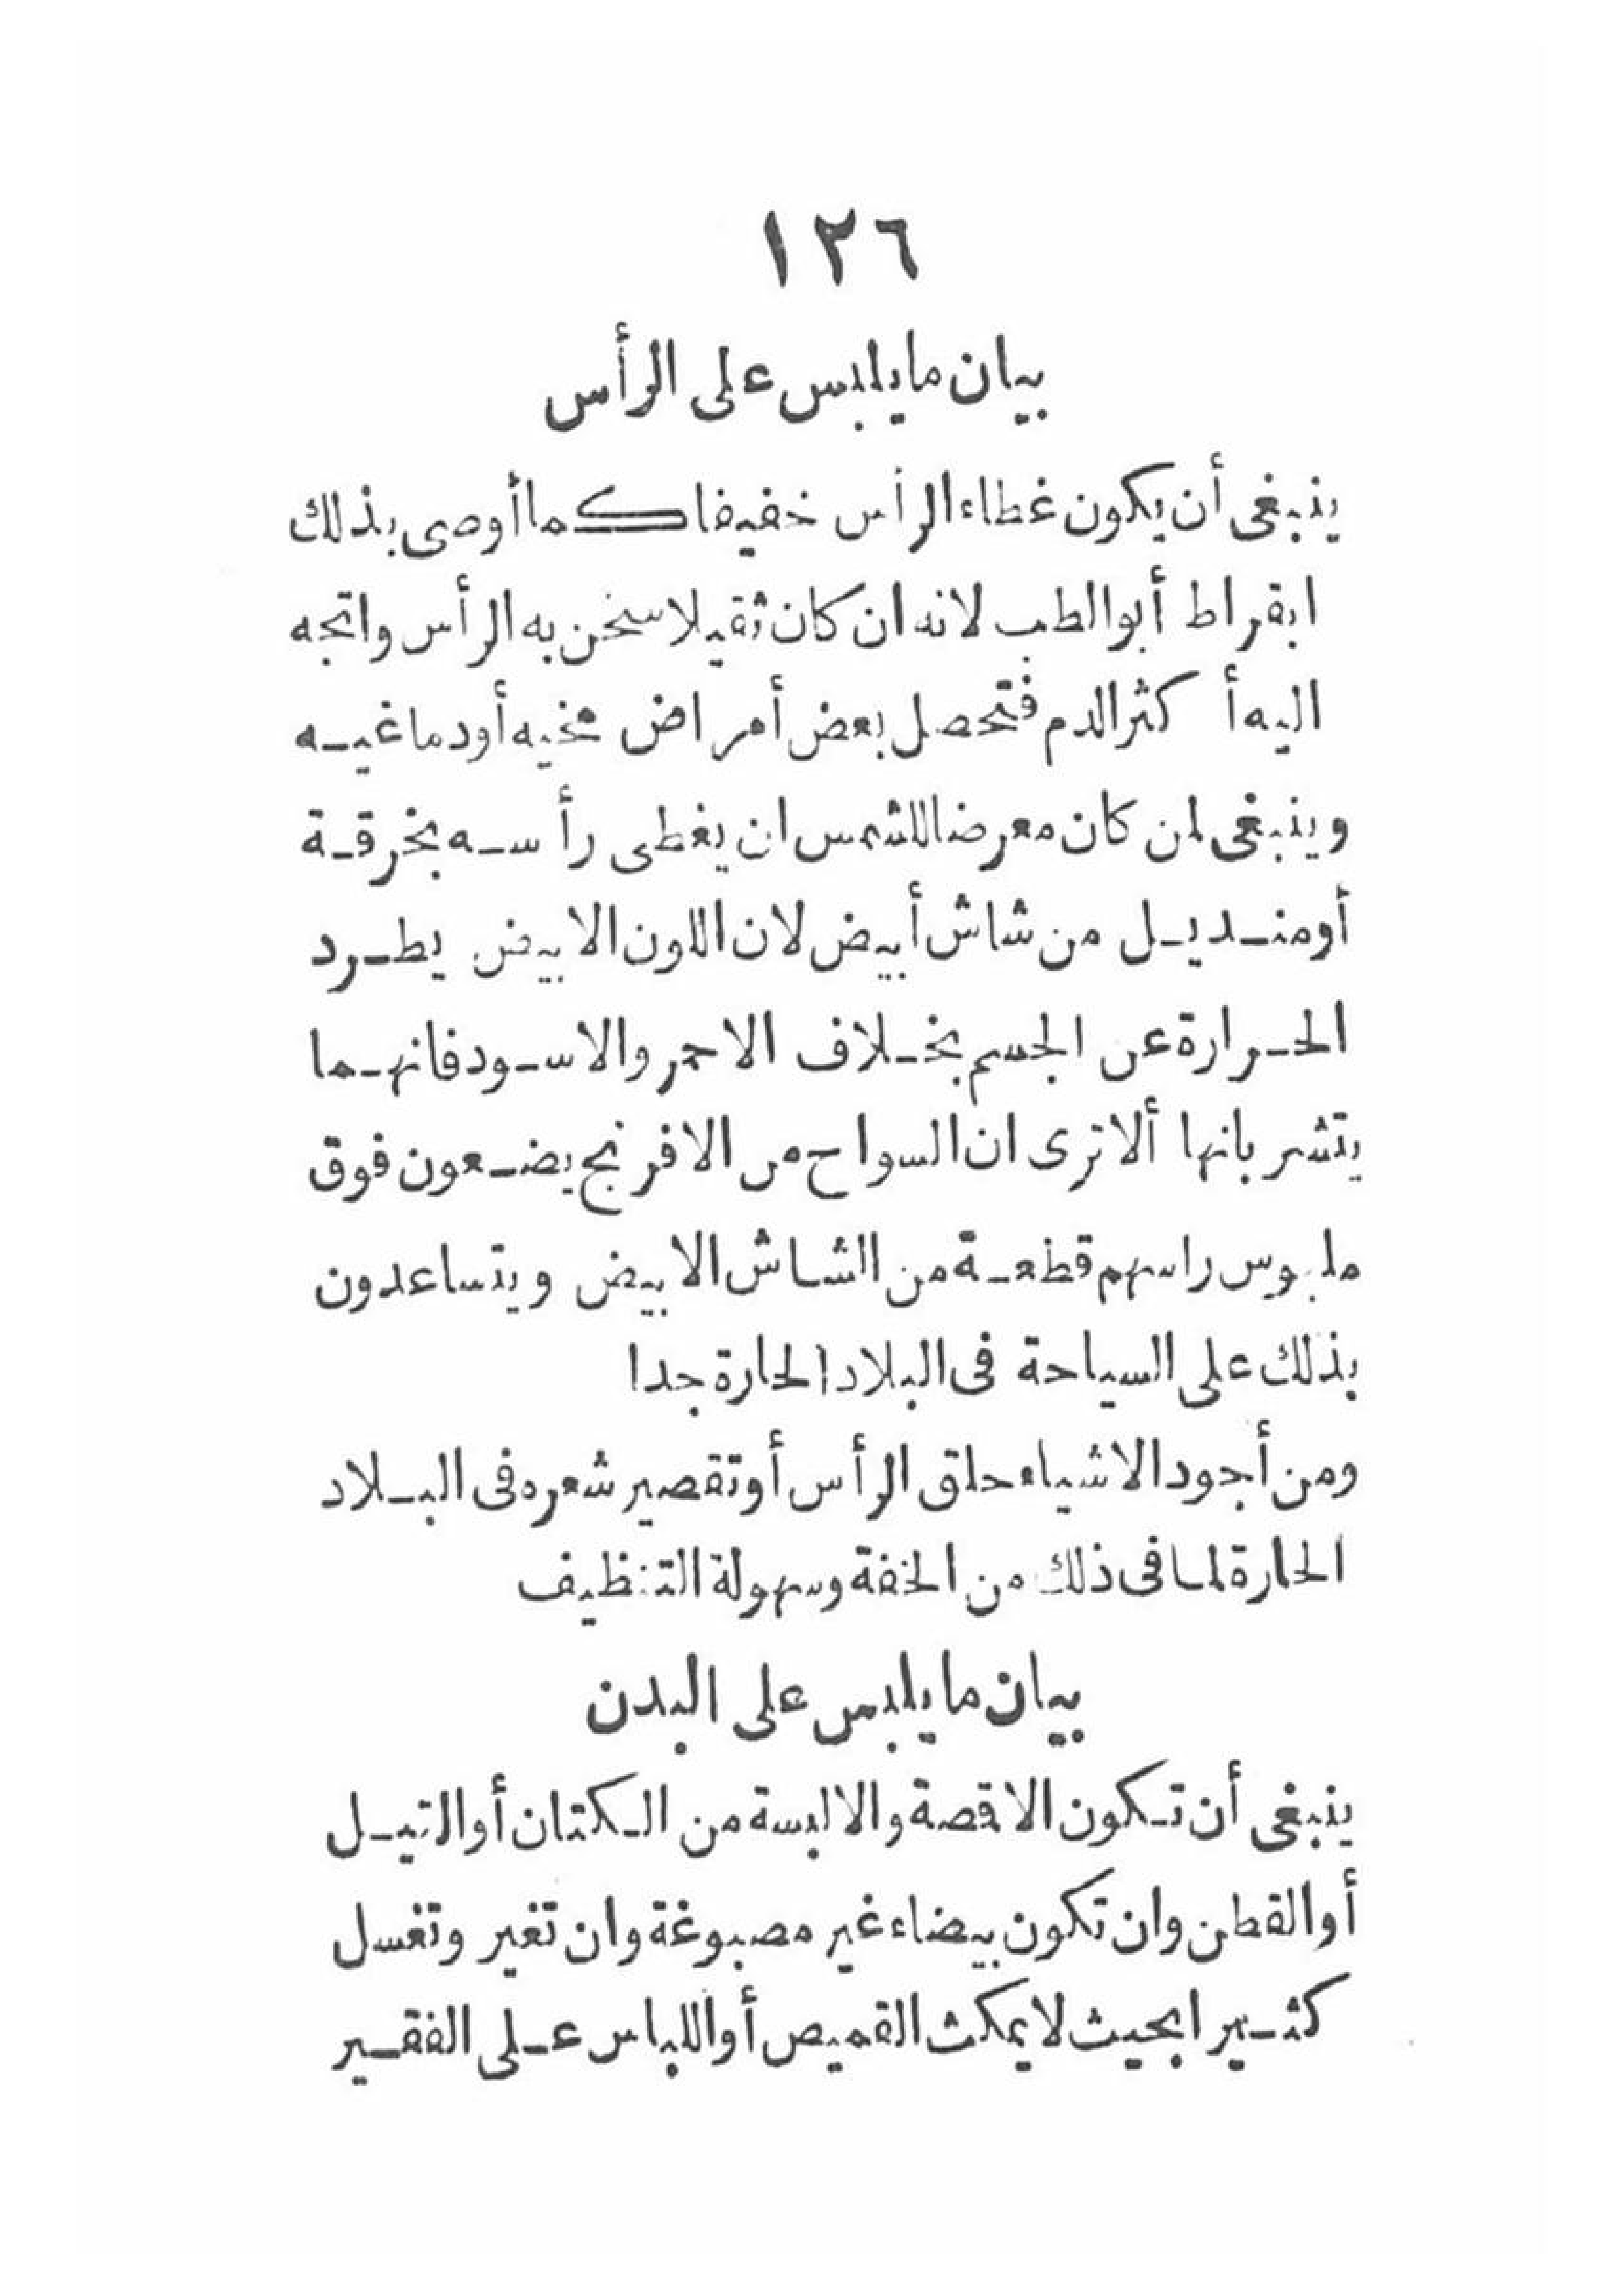 ١٢٦
بيان ما يلبس على الرأس
ينبغى أن يكون غطاء الرأس خفيفا كما أوصى بذلك
ابقراط أبو الطب لانه ان كان ثقيلا سخن به الرأس واتجه
اليه أكثر الدم فتحصل بعض أمراض مخيه أودماغيه
وينبغى لمن كان معرضا للشمس ان يغطى رأسه بخرقة
أومنديل من شاش أبيض لان اللون الابيض يطرد
الحرارة عن الجسم بخلاف الاحمر والاسود فانهما
يتشربانها ألا ترى ان السواح من الافرنج يضعون فوق
ملبوس راسهم قطعة من الشاش الابيض ويتساعدون
بذلك على السياحة فى البلاد الحارة جدا
ومن أجود الاشياء حلق الرأس أوتقصير شعره فى البلاد
الحارة لما فى ذلك من الخفة وسهولة التنظيف
بيان ما يلبس على البدن
ينبغى أن تكون الاقصة والالبسة من الكتان أوالتيل
أوالقطن وان تكون بيضاء غير مصبوغة وان تغير وتغسل
كثيرا بحيث لا يمكث القميص أواللباس على الفقير